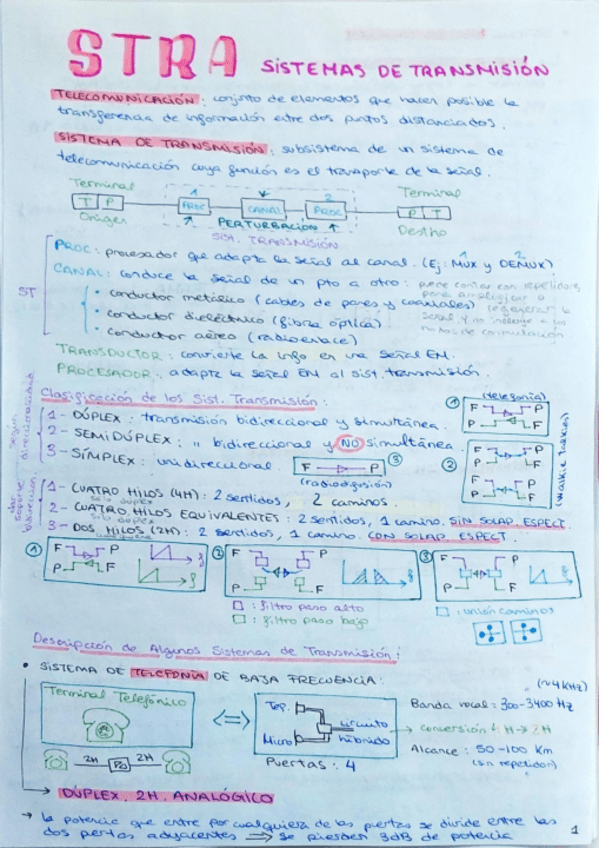 STRA SISTEMAS DE TRANSMISIÓN
TELECOMUNICACIÓN: conjunto de elementos que hacen posible la
transferencia de información entre dos puntos distanciados.
SISTEMA DE TRANSMISIÓN: subsistema de un sistema de
telecomunicación cuya función es el transporte de la señal.
Terminal
T P
Origen
1
PROC
CANAL
2
PROC
PERTURBACIÓN
SIST. TRANSMISIÓN
Terminal
P T
Destino
PROC: procesador que adapta la señal al canal. (Ej: MUX y DEMUX)
1 2
CANAL: conduce la señal de un pto a otro: puede contar con repetidores
para amplificar o
ST
• conductor metálico (cables de pares y coaxiales) regenerar la
• conductor dieléctrico (fibra óptica) señal y no incluye a los
• conductor aéreo (radioenlace) nodos de conmutación
TRANSDUCTOR: convierte la info en una señal EM.
PROCESADOR: adapta la señal EM al sist. transmisión.
Clasificación de los Sist. Transmisión:
según direccionalidad
1- DÚPLEX: transmisión bidireccional y simultánea.
2- SEMIDÚPLEX: " bidireccional y NO simultánea.
3- SÍMPLEX: unidireccional.
F P
3
(radiodifusión)
(telefonía)
1
F P
P F
2
F P
P F
(Walkie Talkies)
bidireccional
1- CUATRO HILOS (4H): 2 sentidos, 2 caminos.
solo duplex
2- CUATRO HILOS EQUIVALENTES: 2 sentidos, 1 camino. SIN SOLAP. ESPECT.
solo duplex
3- DOS HILOS (2H): 2 sentidos, 1 camino. CON SOLAP. ESPECT.
1
F P
P F
f
f
2
F P
P F
f
3
F P
P F
f
: filtro paso alto
: filtro paso bajo
: unión caminos
Descripción de Algunos Sistemas de Transmisión:
• SISTEMA DE TELEFONÍA DE BAJA FRECUENCIA:
(~4kHz)
Terminal Telefónico
2H
2H
Micro
circuito
híbrido
Puertas: 4
Banda vocal: 300-3400 Hz
conversión 4H → 2H
Alcance: 50-100 Km
(sin repetidor)
DÚPLEX, 2H, ANALÓGICO
→ la potencia que entre por cualquiera de las puertas se divide entre las
dos puertas adyacentes ⟹ se pierden 3dB de potencia
1